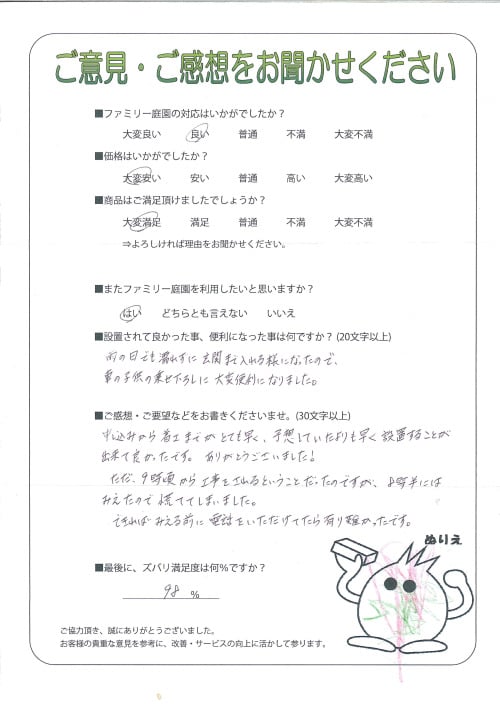 ご意見・ご感想をお聞かせください
■ファミリー庭園の対応はいかがでしたか？
大変良い 良い 普通 不満 大変不満
■価格はいかがでしたか？
大変安い 安い 普通 高い 大変高い
■商品はご満足頂けましたでしょうか？
大変満足 満足 普通 不満 大変不満
⇒よろしければ理由をお聞かせください。
■またファミリー庭園を利用したいと思いますか？
はい どちらとも言えない いいえ
■設置されて良かった事、便利になった事は何ですか？(20文字以上)
雨の日でも濡れずに玄関まで入れる様になったので、
車の子供の乗せ下ろしに大変便利になりました。
■ご感想・ご要望などをお書きくださいませ。(30文字以上)
申込みから着工までがとても早く、予想していたよりも早く設置することが
出来て良かったです。ありがとうございました！
ただ、9時頃から工事をされるということだったのですが、8時半には
みえたので慌ててしまいました。
できればみえる前に電話をいただけてたら有り難かったです。
ぬりえ
■最後に、ズバリ満足度は何％ですか？
98 ％
ご協力頂き、誠にありがとうございました。
お客様の貴重な意見を参考に、改善・サービスの向上に活かして参ります。